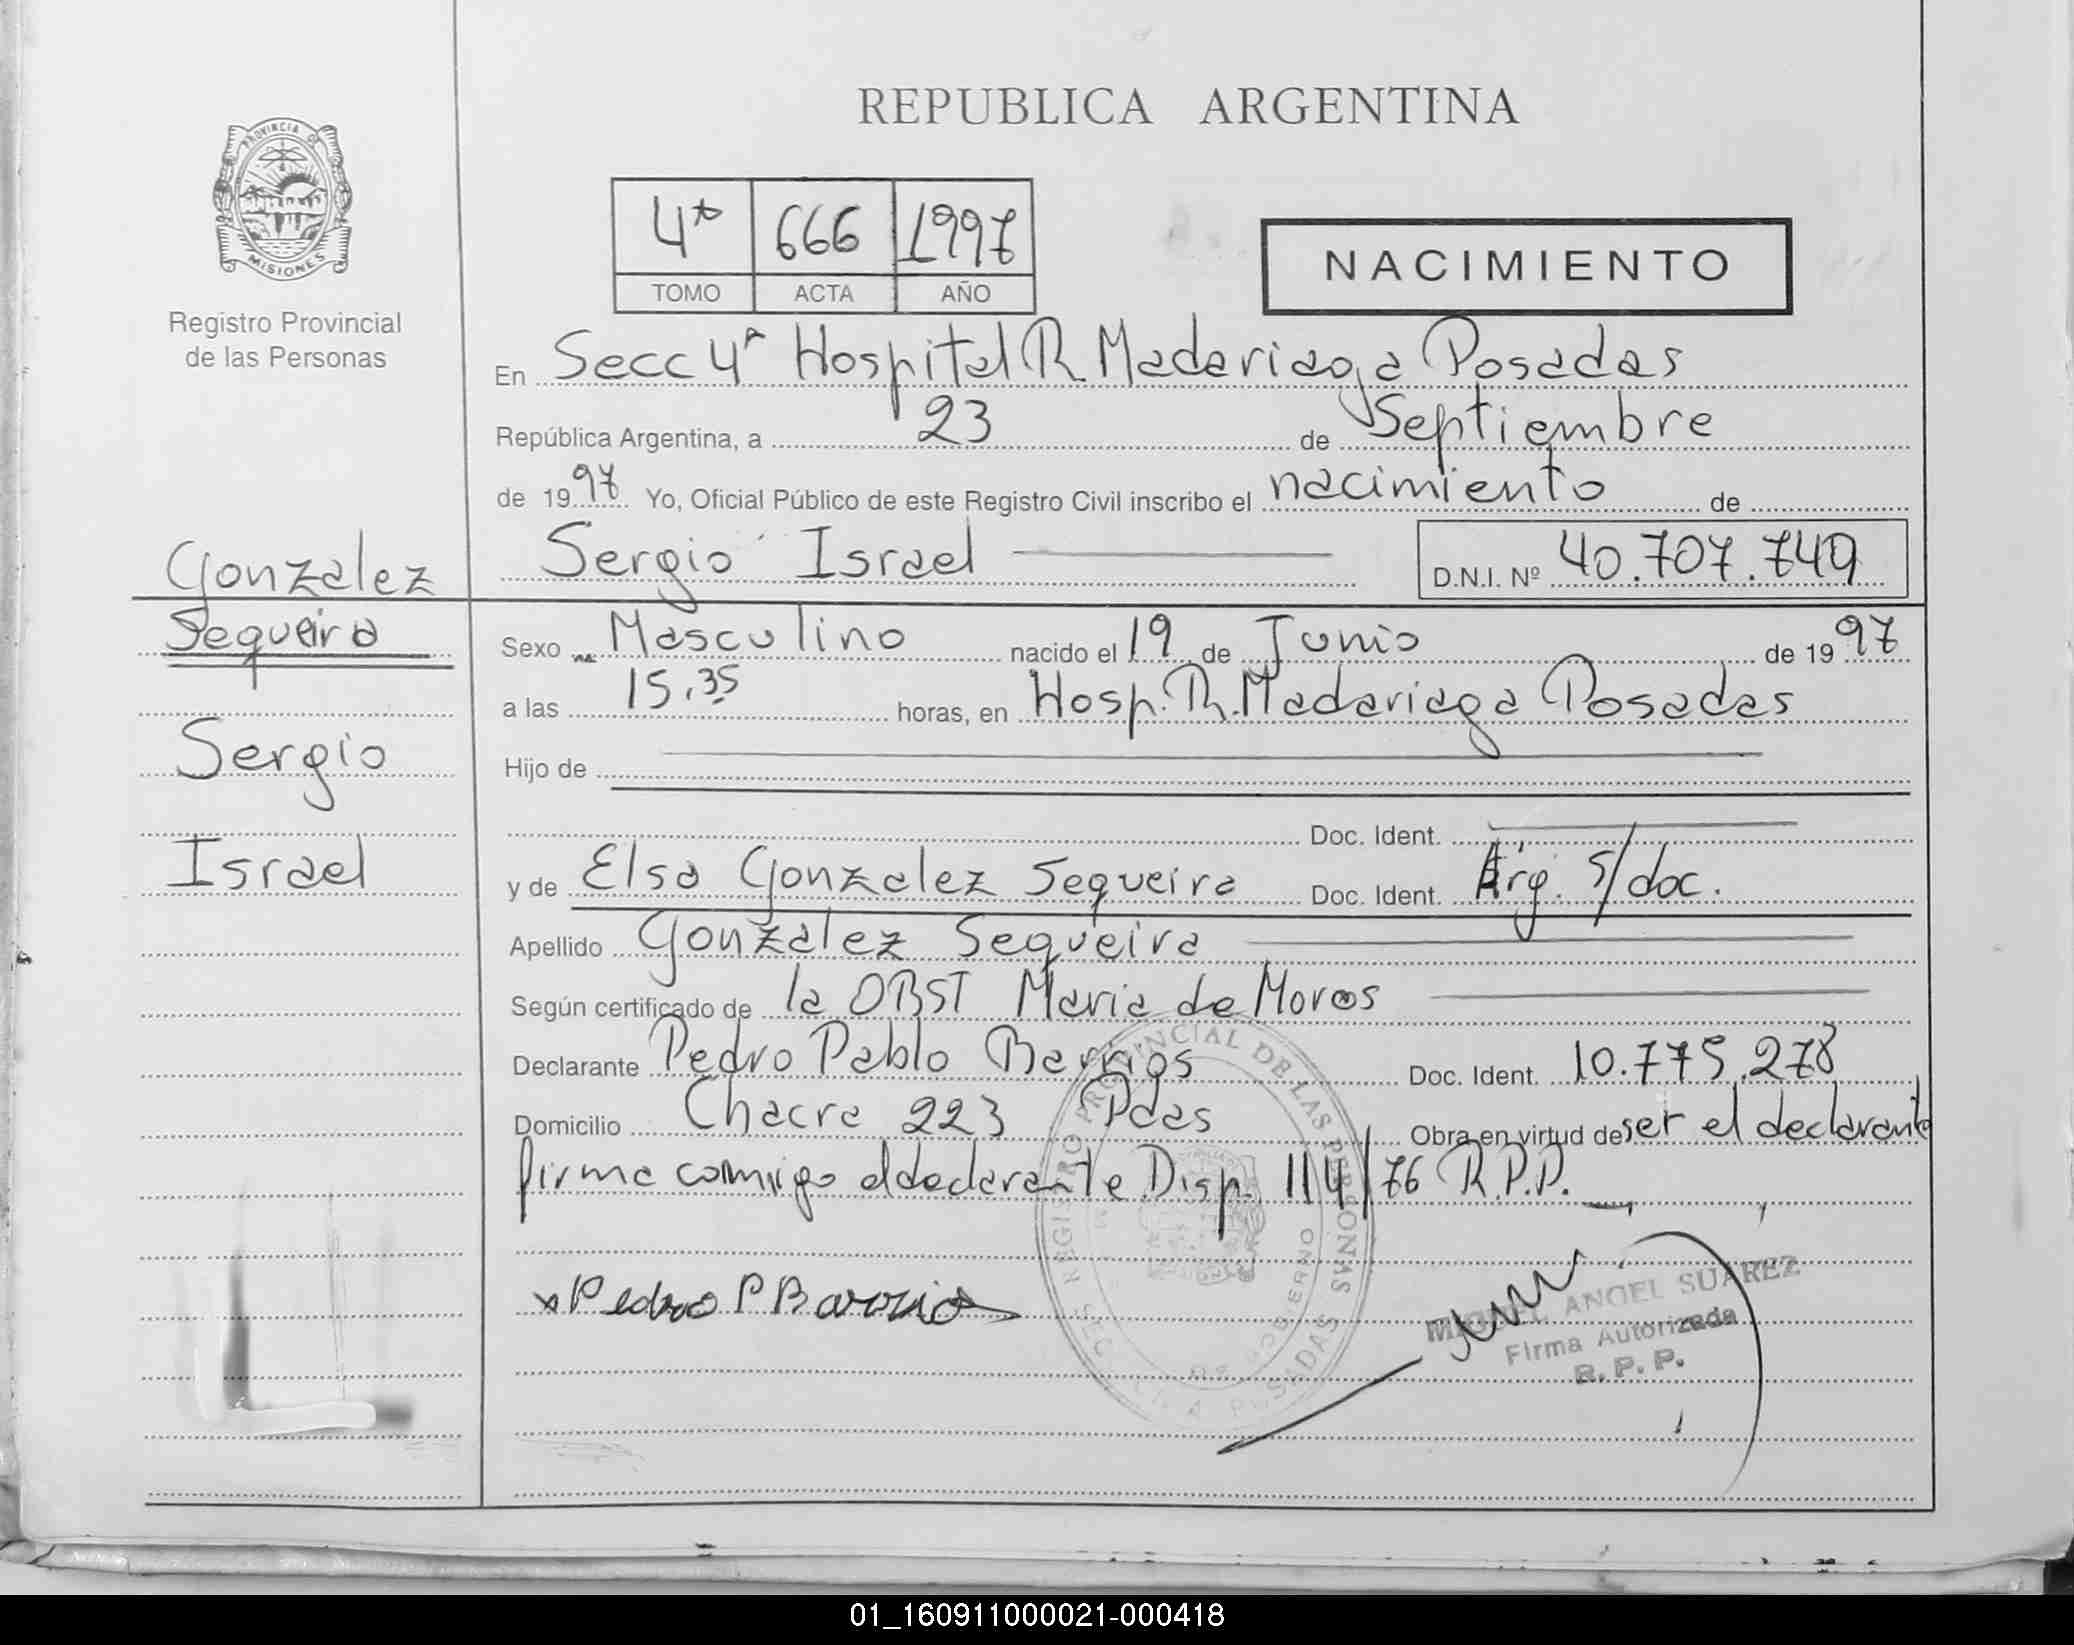 REPUBLICA ARGENTINA
PROVINCIA DE
MISIONES
Registro Provincial
de las Personas
4to 666 1997
TOMO ACTA AÑO
NACIMIENTO
En Secc 4ª Hospital R. Madariaga Posadas
República Argentina, a 23 de Septiembre
de 1997 Yo, Oficial Público de este Registro Civil inscribo el nacimiento de
Sergio Israel D.N.I. Nº 40.707.749
Gonzalez
Sequeira
Sergio
Israel
Sexo Masculino nacido el 19 de Junio de 1997
a las 15,35 horas, en Hosp. R. Madariaga Posadas
Hijo de
Doc. Ident.
y de Elsa Gonzalez Sequeira Doc. Ident. Arg. s/doc.
Apellido Gonzalez Sequeira
Según certificado de la OBST Maria de Moros
Declarante Pedro Pablo Barrios Doc. Ident. 10.775.278
Domicilio Chacra 223 Pdas Obra en virtud de ser el declarante
firma conmigo el declarante Disp. 114/76 R.P.P.
REGISTRO PROVINCIAL DE LAS PERSONAS
POSADAS
DE GOBIERNO
x Pedro P Barrios
MIGUEL ANGEL SUAREZ
Firma Autorizada
R. P. P.
01_160911000021-000418